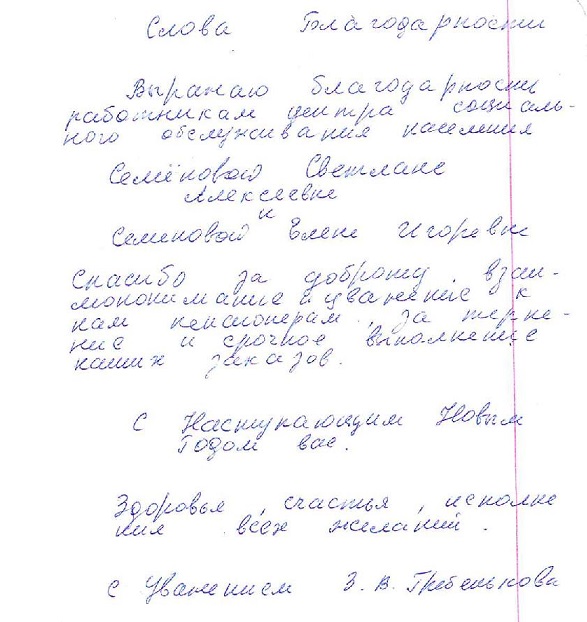 Слова Благодарности
Выражаю благодарность
работникам центра социаль-
ного обслуживания населения
Семёновой Светлане
Алексеевне
и
Семеновой Елене Игоревне
Спасибо за доброту, взаи-
мопонимание и уважение к
нам пенсионерам, за терпе-
ние и срочное выполнение
наших заказов.
С Наступающим Новым
Годом вас.
Здоровья, счастья, исполне
ния всех желаний.
С Уважением З. В. Гребенькова